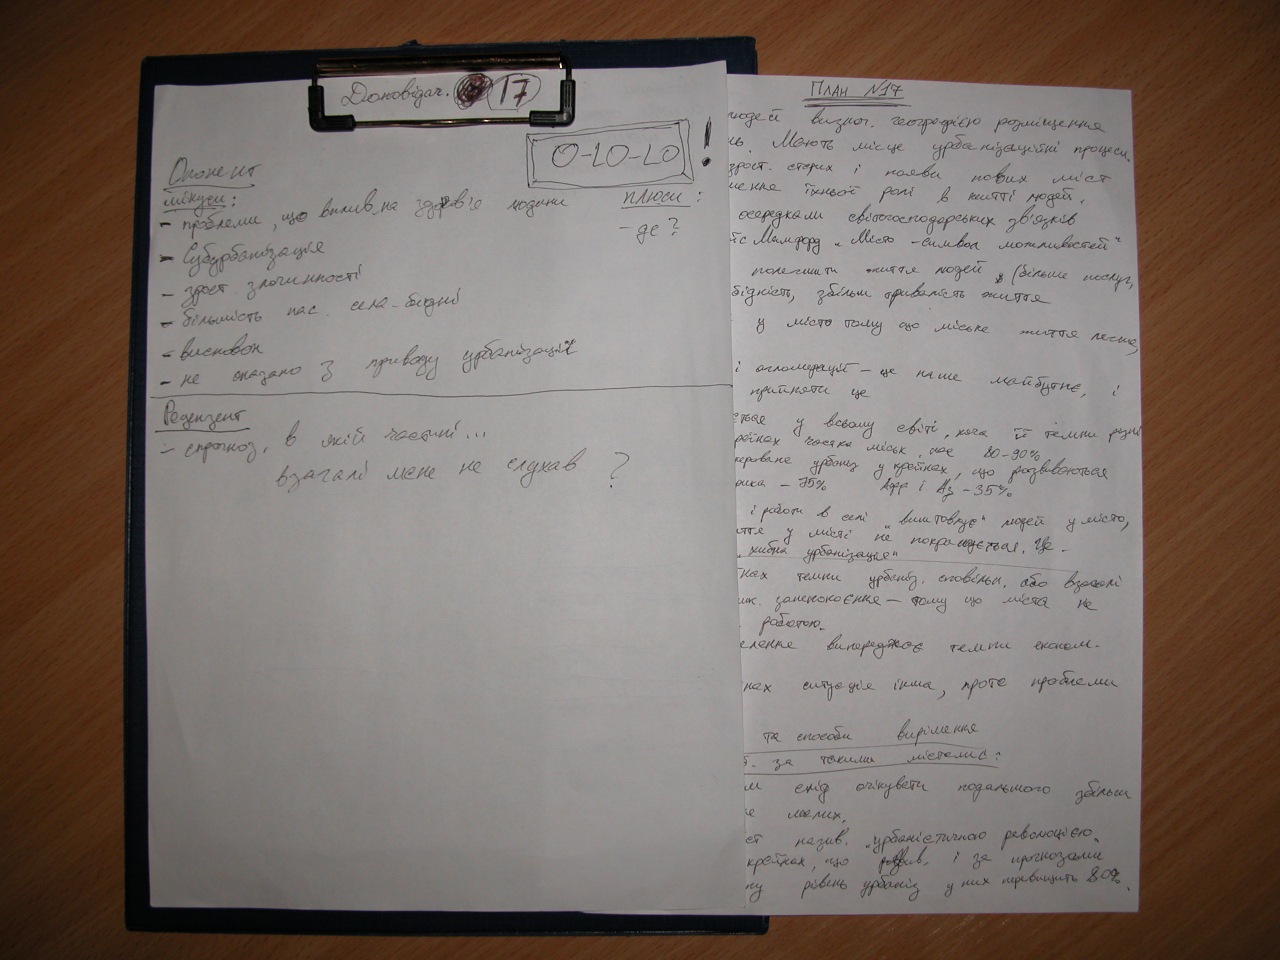 Доповідач. 17
О-LO-LO !
Опонент
мінуси:
- проблеми, що вплив. на здоров'я людини
- Субурбанізація
- зрост. злочинності
- більшість нас. села - бідні
- висновок
- не сказано з приводу урбанізації
плюси:
- де?
Рецензент
- спрогноз. в якій частині...
взагалі мене не слухав ?
План №17
людей визнач. географією розміщення
Мають місце урбанізаційні процеси.
зрост. старих і появи нових міст
їхньої ролі в житті людей.
осередками світогосподарських зв'язків
Мамфорд "Місто - символ можливостей"
полегшити життя людей (більше послуг,
бідність, збільш тривалість життя
у місто тому що міське життя легше,
і агломерацій - це наше майбутнє, і
прийняти це
у всьому світі, хоча її темпи різні
частка міськ. нас 80-90%
урбаніз у країнах, що розвиваються
- 75% Афр і Аз - 35%
і роботи в селі "виштовхує" людей у місто,
у місті не покращується. Це -
"хибна урбанізація"
темпи урбаніз. сповільн. або взагалі
занепокоєння - тому що міста не
роботою.
випереджає темпи економ.
ситуація інша, проте проблеми
та способи вирішення
за такими містами?
слід очікувати подальшого збільш
малих.
назив. "урбаністичною революцією"
країнах, що розвив. і за прогнозами
рівень урбаніз у них перевищить 80%.